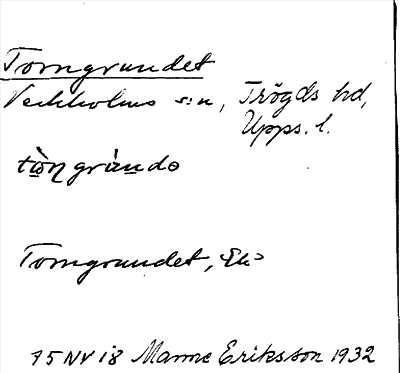 Torngrundet
Veckholms s:n, Trögds hd,
Upps. l.
tɷ̀ŋgrúndə
Torngrundet, Ek>
75 NV i8 Manne Eriksson 1932